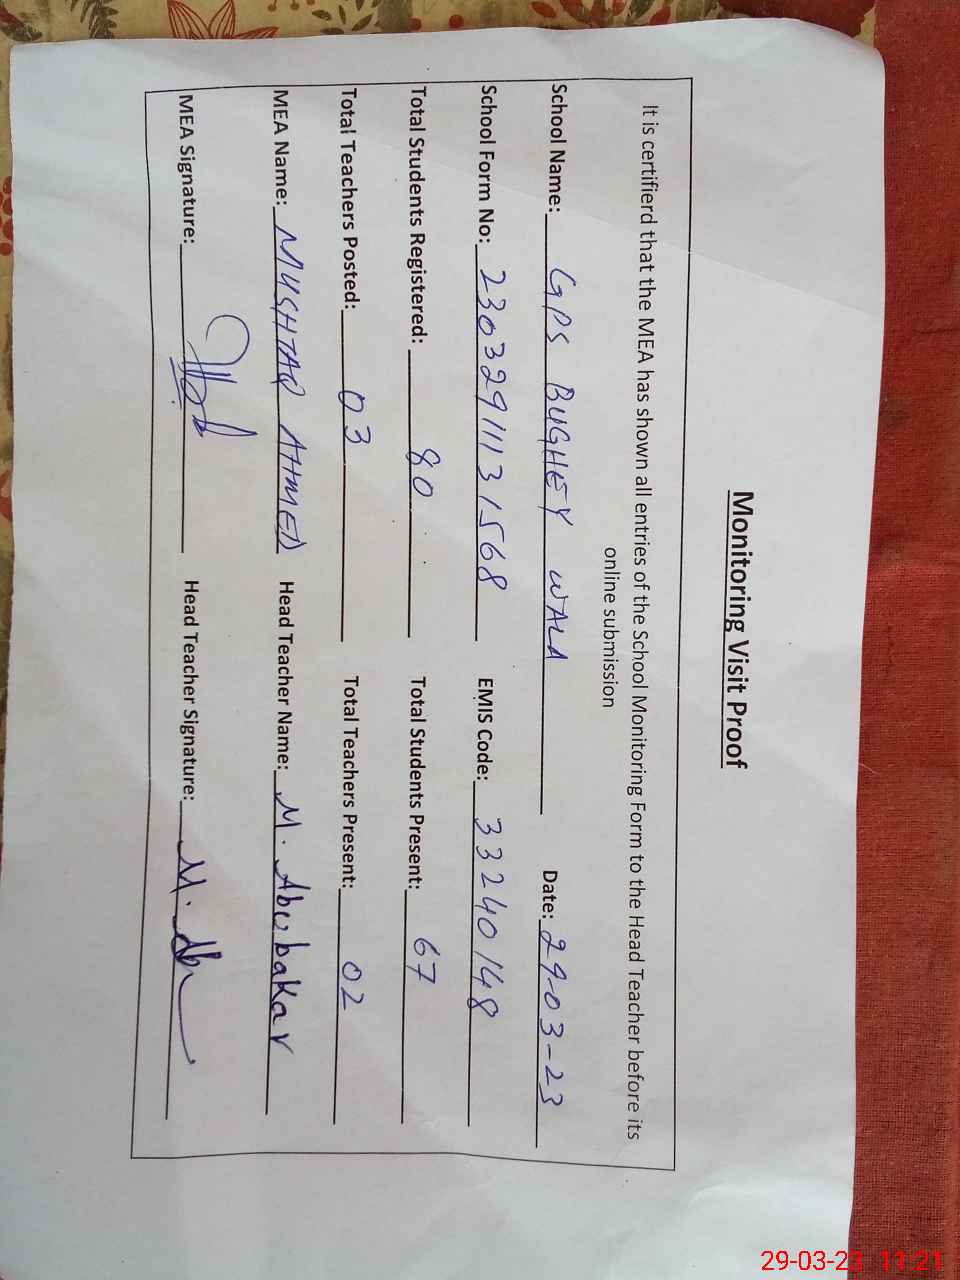 Monitoring Visit Proof
It is certifierd that the MEA has shown all entries of the School Monitoring Form to the Head Teacher before its
online submission
School Name: GPS BUGHEY WALA Date: 29-03-23
School Form No: 23032911131568 EMIS Code: 33240148
Total Students Registered: 80 Total Students Present: 67
Total Teachers Posted: 03 Total Teachers Present: 02
MEA Name: MUSHTAQ AHMED Head Teacher Name: M. Abubakar
MEA Signature: Head Teacher Signature: M. Abu
29-03-23 11:21